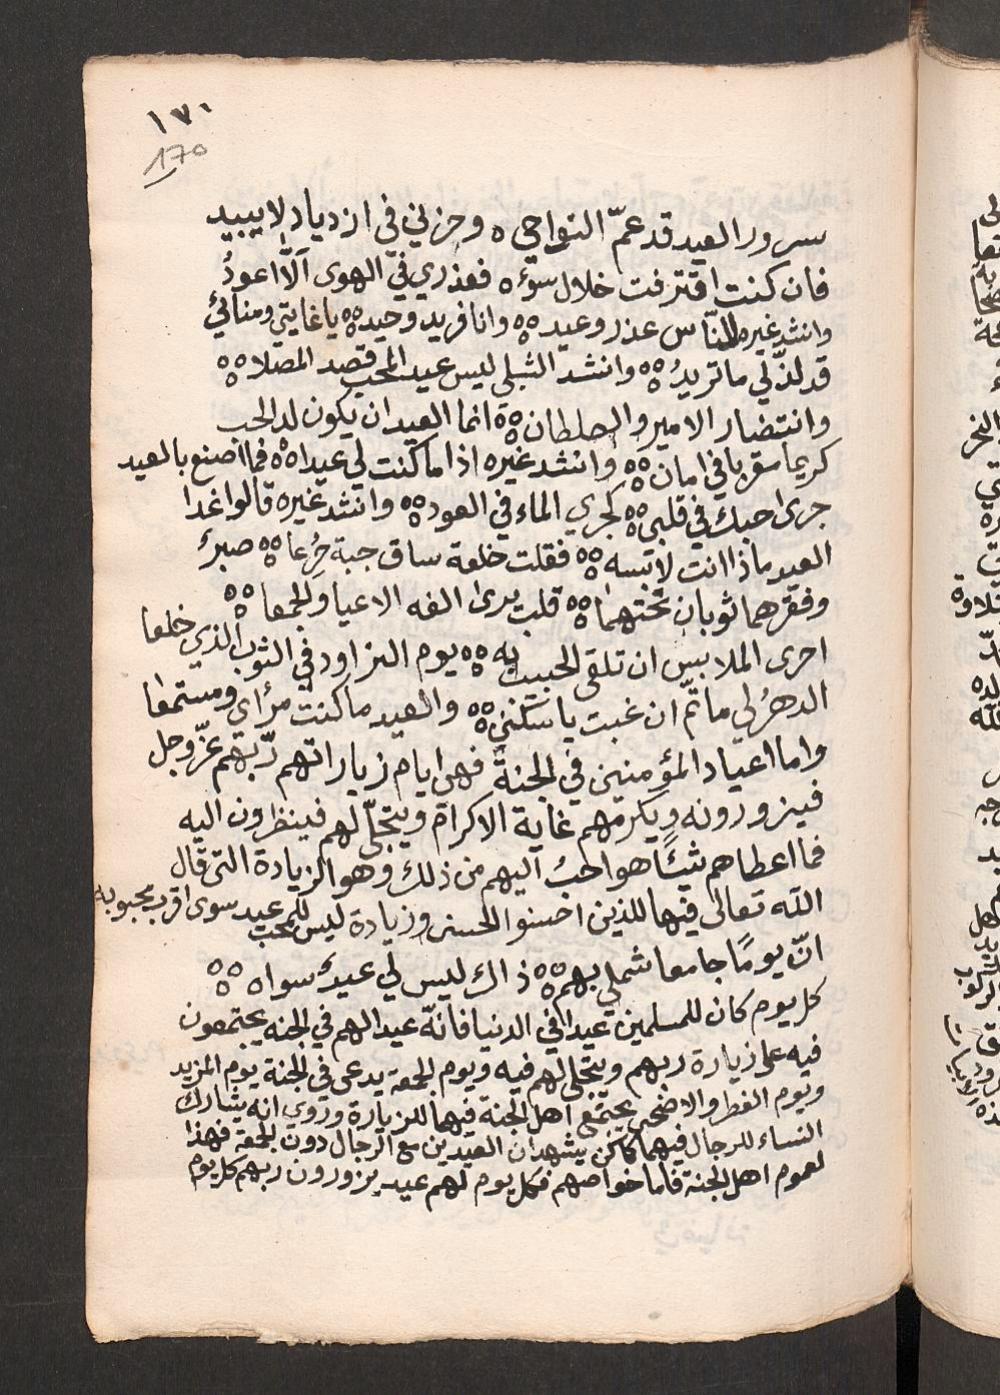 ١٧٠
170
سرور العيد قد عمّ النواحي ه وحزني في ازدياد لا يبيد
فان كنت اقترفت خلال سوٓء ه فعذري في الهوى ألّا اعودُ
وانشد غيره للنّاس عذر وعيد ٥٥ وانا فريد وحيد ٥٥ يا غايتي ومنائي
قد لذّ لي ما تريدُ ٥٥ وانشد الشبلي ليس عيد المحب قصد المصلا ٥٥
وانتضار الامير والسلطان ٥٥ انما العيد ان يكون لدا لحب
كريما مقربا في امان ٥٥ وانشد غيره اذا ما كنت لي عيدا ٥٥ فما اصنع بالعيد
جرى حبك في قلبي ٥٥ كجري الماء في العود ٥٥ وانشد غيره قالوا غدا
العيد ماذا انت لابسه ٥٥ فقلت خلعة ساق حبة جرعا ٥٥ صبرٌ
وفقر هما ثوبان تحتهما ٥٥ قلب يرى الفه الاعيا والجمعا ٥٥
احرى الملابس ان تلقى الحبيب به ٥٥ يوم التزاور في الثوب الذي خلعا
الدهرُ لي ماتّم ان غبت يا سكني ٥٥ والعيد ما كنت مرأى ومستمعا
واما اعياد المؤمنين في الجنة فهي ايام زياراتهم ربّهم عزّ وجل
فيزورونه ويكرمهم غاية الاكرام ويتجلّى لهم فينظرون اليه
فما اعطاهم شيئًا هو احبُ اليهم من ذلك وهو الزيادة التي قال
الله تعالى فيها للذين احسنوا الحسنى وزيادة ليس للمحب عيد سوى اقرب محبوبه
انّ يومًا جامعا شملي بهم ٥٥ ذاك ليس لي عيدٌ سواه ٥٥
كل يوم كان للمسلمين عيدا في الدنيا فانّه عيدا لهم في الجنه يجتمعون
فيه على زيارة ربهم ويتجلى لهم فيه ويوم الجمعة يدعى في الجنة يوم المزيد
ويوم الفطر والاضحى يجتمع اهل الجنة فيهما للزيارة وروي انه يشارك
النساء للرجال فيهما كما كن يشهدان العيدين مع الرجال دون الجمعة فهذا
لعموم اهل الجنة فاما خواصهم فكل يوم لهم عيد يزورون ربهم كل يوم